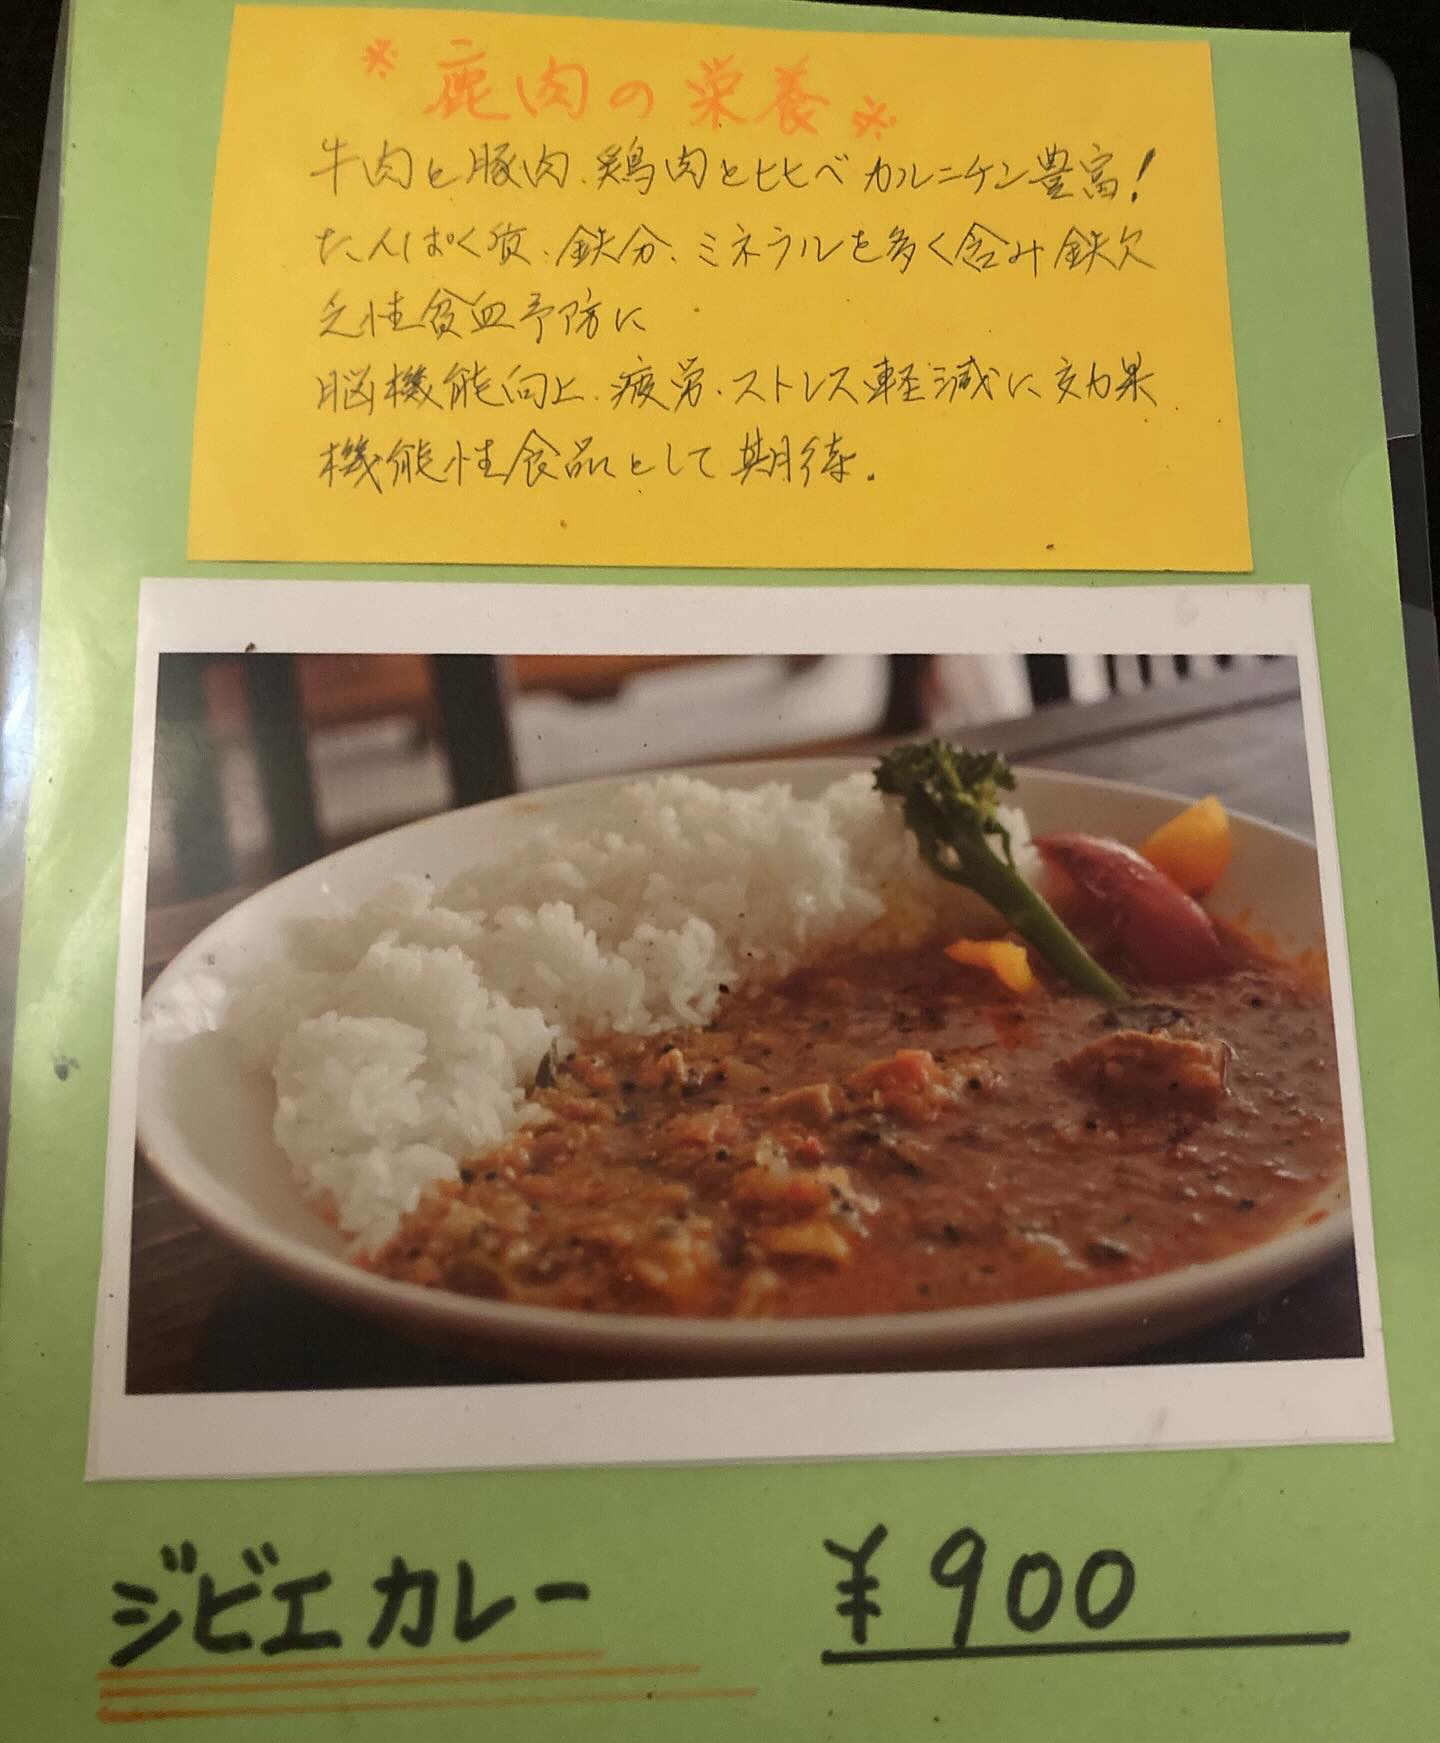 ※鹿肉の栄養※
牛肉と豚肉、鶏肉と比べカルニチン豊富！
たんぱく質、鉄分、ミネラルを多く含み鉄欠
乏性貧血予防に
脳機能向上、疲労・ストレス軽減に効果
機能性食品として期待。
ジビエカレー ¥900